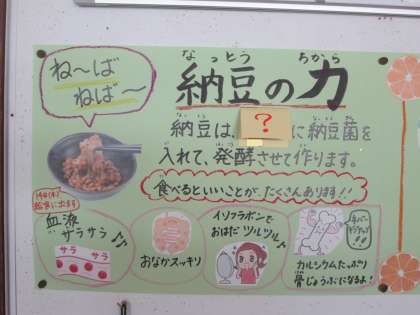 ね〜ば
ねば〜
なっとう ちから
納豆の力
納豆は、？に納豆菌を
入れて、発酵させて作ります。
食べるといいことが、たくさんあります!!
給食に出ます
血液
サラサラ♪♪
サラ サラ
おなかスッキリ
イソフラボンで
おはだ ツルツル♪
カルシウムたっぷり
骨じょうぶになるよ！